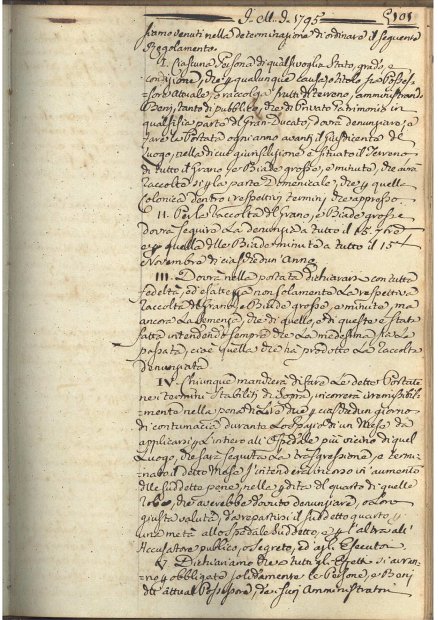 J. M. J. 1795 101
siamo venuti nella determinazione di ordinare il seguente
Regolamento.
I. Ciascuna Persona di qualsivoglia Stato, grado, e
condizione, che qualunque causa, o titolo sia Posses-
sore attuale, o raccolga frutti di terreno, amministrando
Beni, tanto di pubblico, che di Privato Patrimonio in
qualsisia parte di Gran-Ducato, dovrà denunziare, e
dare la Portata ogni anno avanti il Giusdicente del
Luogo, nella di cui giurisdizione è situato il Terreno
di tutto il Grano, e Biade grosse, e minute, che avrà
raccolto si la parte Domenicale, che quella
Colonica dentro i respettivi termini che appresso
II. Per la Raccolta del Grano, e Biade grosse
dovrà seguire la denunzia a tutto il 15.
e quella delle Biade minute a tutto il 15
Novembre di ciaschedun Anno.
III. Dovrà nella portata dichiarare con tutta
fedeltà, ed esattezza non solamente la respettiva
raccolta del Grano, e Biade grosse, e minute, ma
ancora la semenza, che di quello, e di queste è stata
fatta intendendosi sempre che la medesima sia la
passata, cioè quella che ha prodotto la raccolta
denunziata
IV. Chiunque mancherà di fare le dette Portate
nei termini stabiliti di sopra, incorrerà irremissibil-
mente nella pena di Lire due ciaschedun giorno
di contumacia durante lo spazio di un Mese da
applicarsi intiero all' Spedale più vicino di quel
Luogo, che sarà seguita la trasgressione, e termi-
nato il detto Mese s'intenderà incorso in aumento
delle suddette pene, nella perdita del quarto di quelle
robe, che averebbe dovuto denunziare, o loro
giusta valuta, da repartirsi il suddetto quarto
una metà allo Spedale suddetto, e l'altra all'
Accusatore pubblico, o segreto, ed agli Esecutori
V. Dichiariamo che a tutti gli effetti si avran-
no obbligate solidamente le Persone, e Beni
detti attuali Possessori, da i suoi Amministratori